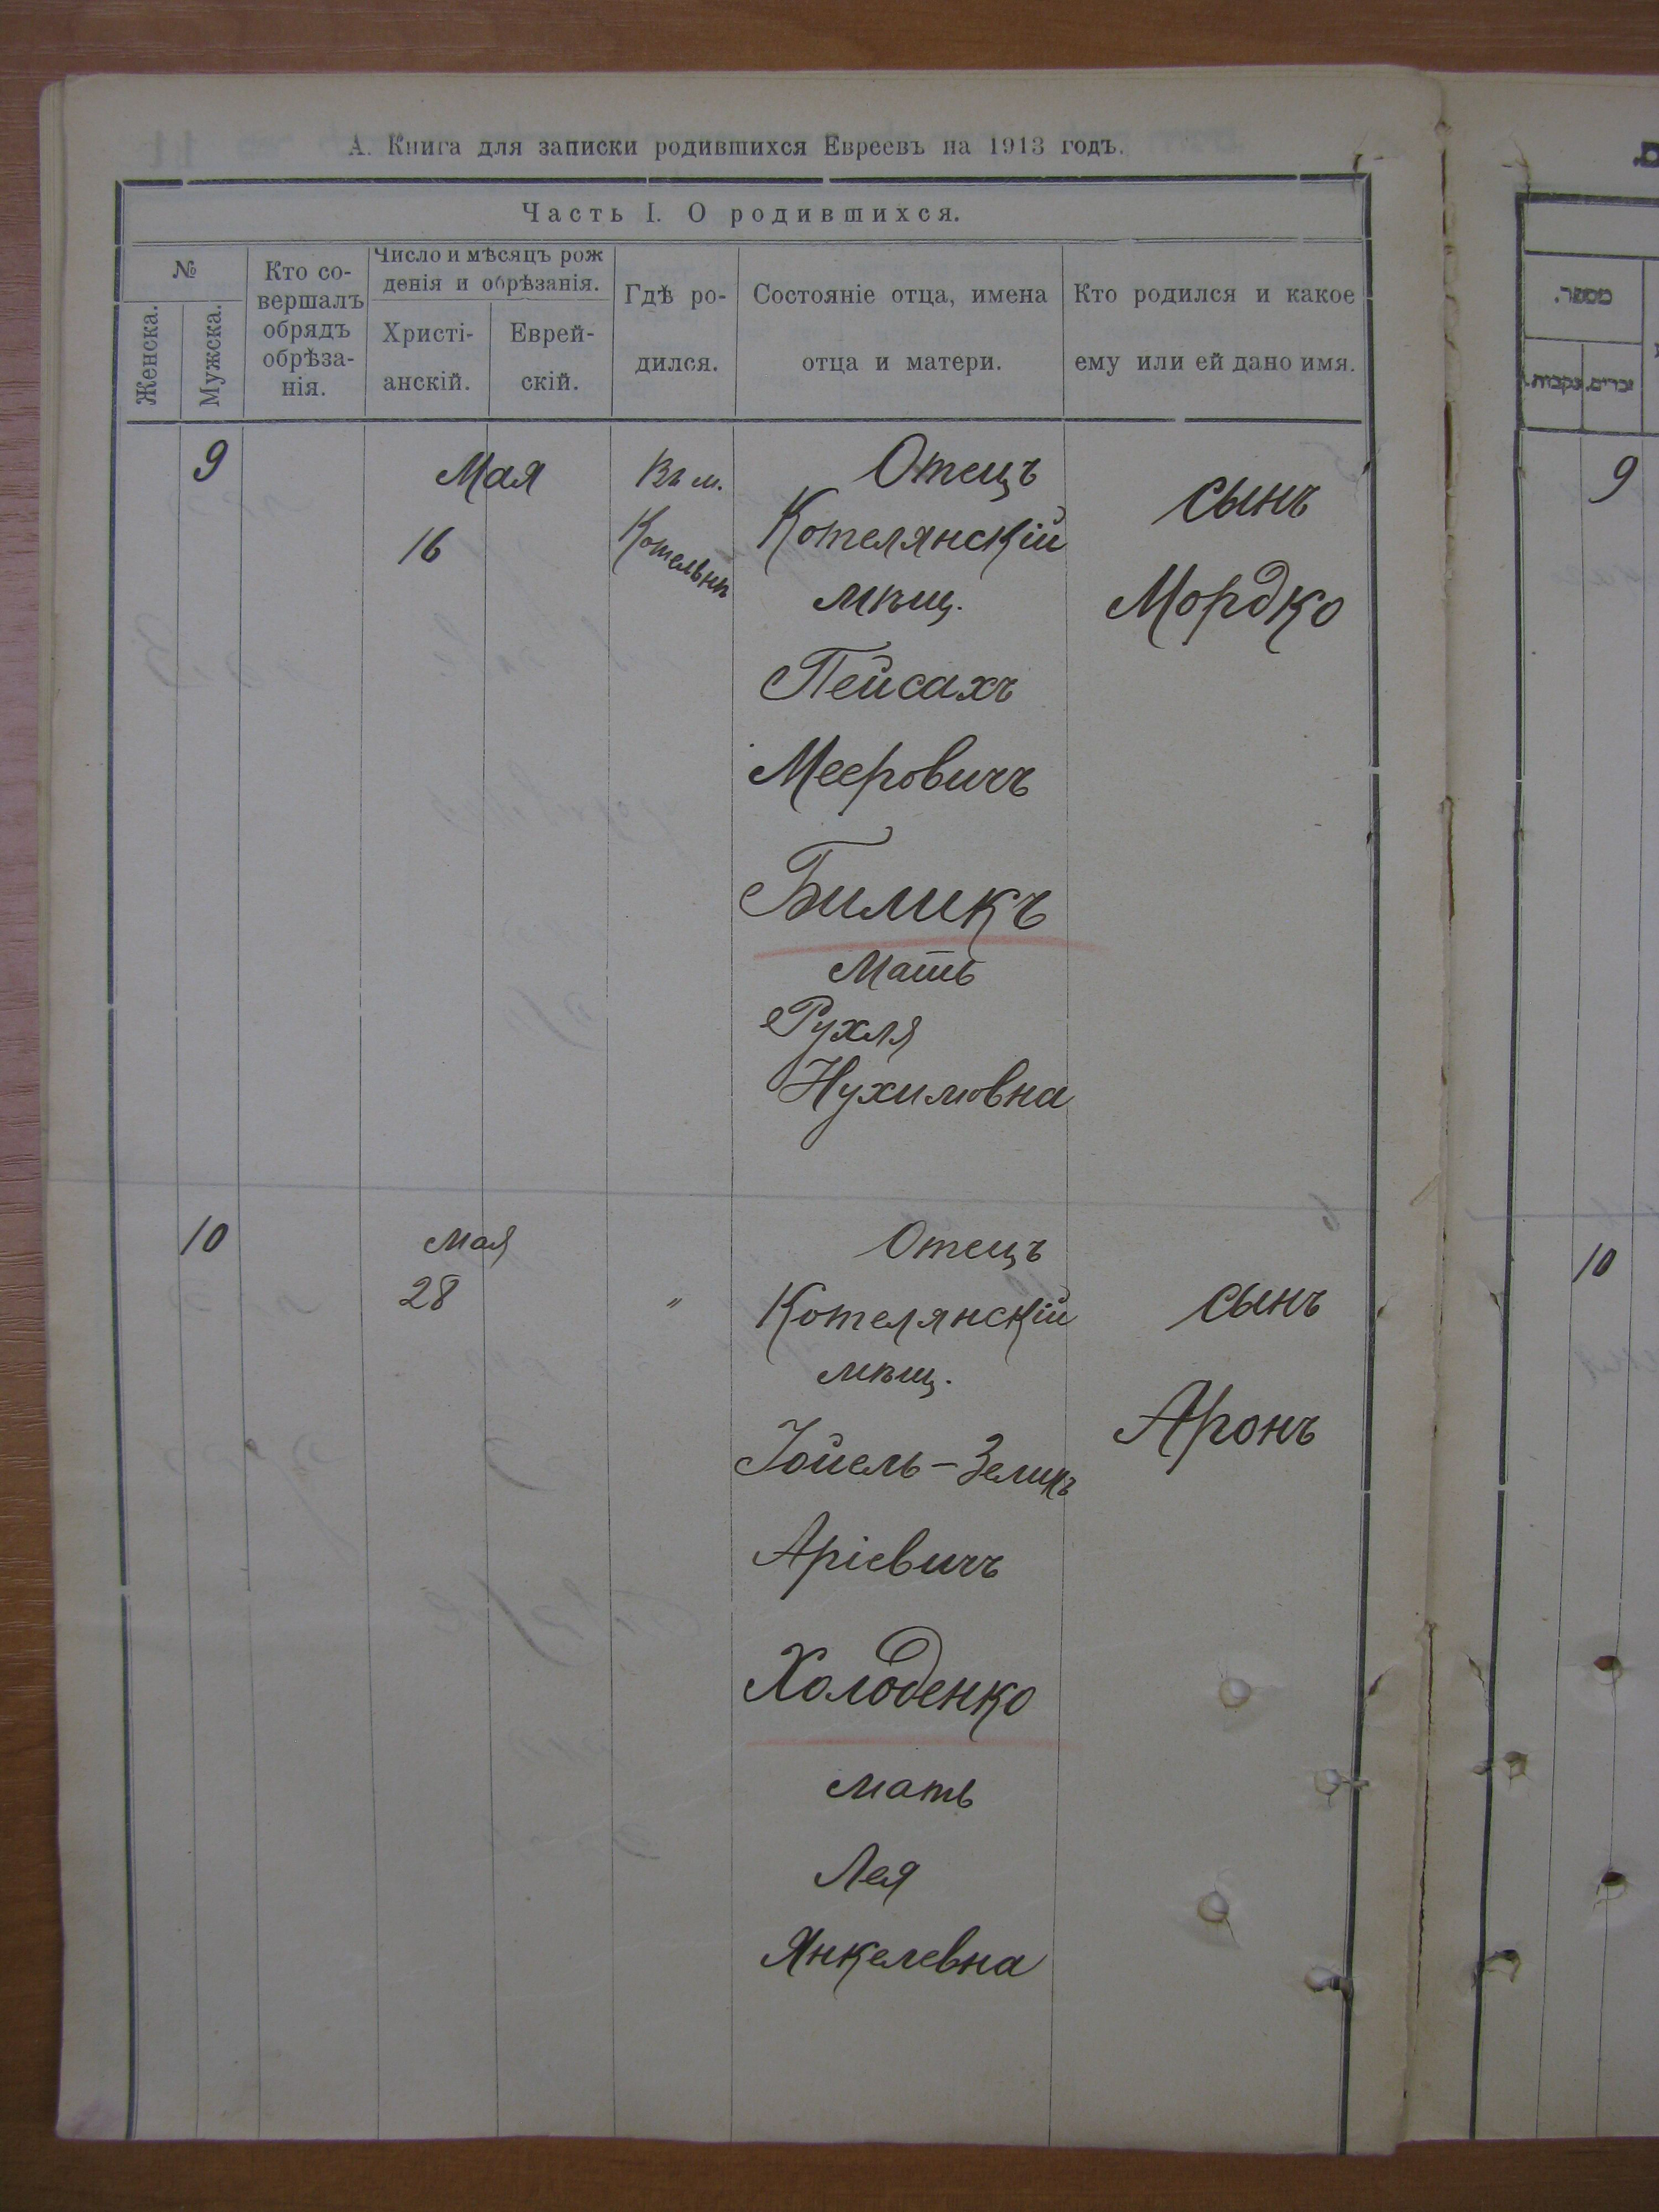 А. Книга для записки родившихся Евреевъ на 1913 годъ.
Часть I. О родившихся.
№
Женска.
Мужска.
Кто со-
вершалъ
обрядъ
обрѣза-
нія.
Число и мѣсяцъ рож
денія и обрѣзанія.
Христі-
анскій.
Еврей-
скій.
Гдѣ ро-
дился.
Состояніе отца, имена
отца и матери.
Кто родился и какое
ему или ей дано имя.
9
Мая
16
Въ м.
Котельнѣ
Отецъ
Котелянскій
мѣщ.
Пейсахъ
Мееровичъ
Биликъ
Мать
Рухля
Нухимовна
сынъ
Мордко
10
Мая
28
"
Отецъ
Котелянскій
мѣщ.
Іойель-Зеликъ
Аріевичъ
Холоденко
мать
Лея
Янкелевна
сынъ
Аронъ
מספר.
זכרים.
נקבות.
9
10